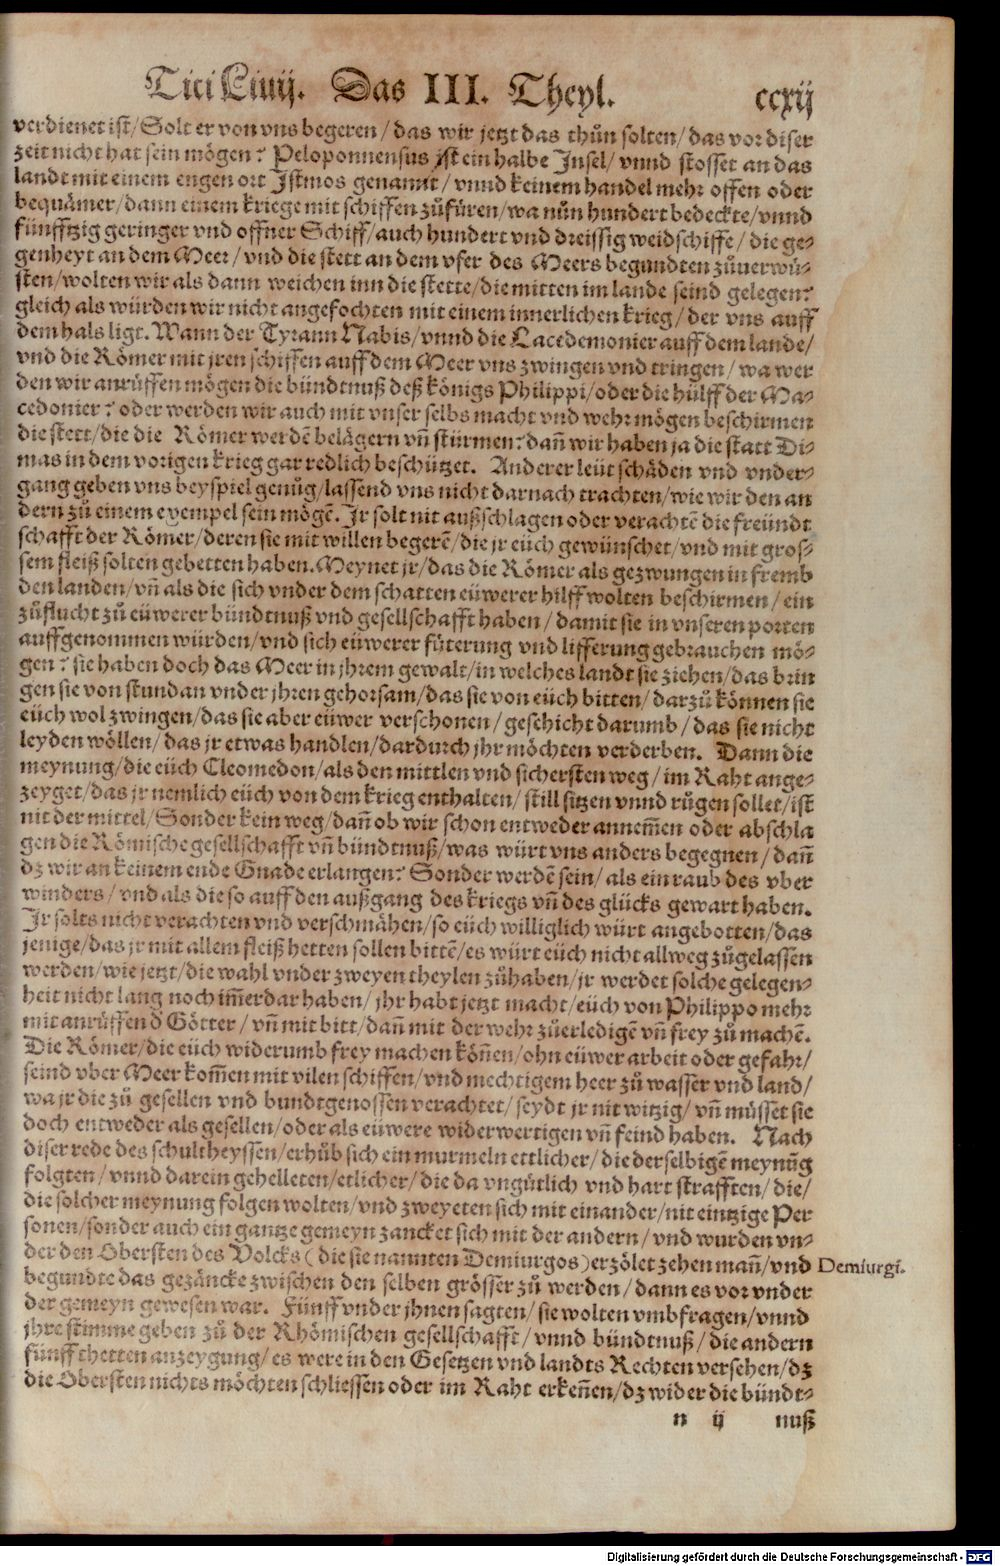 Titi Liuij. Das III. Theyl. ccxij
verdienet ist/ Solt er von vns begeren/ das wir jetzt das thůn solten/ das vor diser
zeit nicht hat sein mögen? Peloponnensus ist ein halbe Jnsel/ vnnd stosset an das
landt mit einem engen ort Jstmos genannt/ vnnd keinem handel mehr offen oder
bequämer/ dann einem kriege mit schiffen zůfüren/ wa nůn hundert bedeckte/ vnnd
fünfftzig geringer vnd offner Schiff/ auch hundert vnd dreissig weidschiffe/ die ge⸗
genheyt an dem Meer/ vnd die stett an dem vfer des Meers begundten zůuerwů⸗
sten/ wolten wir als dann weichen inn die stette/ die mitten im lande seind gelegen?
gleich als würden wir nicht angefochten mit einem innerlichen krieg/ der vns auff
dem hals ligt. Wann der Tyrann Nabis/ vnnd die Lacedemonier auff dem lande/
vnd die Römer mit jren schiffen auff dem Meer vns zwingen vnd tringen/ wa wer
den wir anrüffen mögen die bündtnuß deß königs Philippi/ oder die hülff der Ma⸗
cedonier? oder werden wir auch mit vnser selbs macht vnd wehr mögen beschirmen
die stett/ die die Römer werdē belägern vñ stürmen? dañ wir haben ja die statt Di⸗
mas in dem vorigen krieg gar redlich beschützet. Anderer leüt schäden vnd vnder⸗
gang geben vns beyspiel genůg/ lassend vns nicht darnach trachten/ wie wir den an
dern zů einem exempel sein mögē. Jr solt nit außschlagen oder verachtē die freündt
schafft der Römer/ deren sie mit willen begerē/ die jr eüch gewünschet/ vnd mit gros⸗
sem fleiß solten gebetten haben. Meynet jr/ das die Römer als gezwungen in fremb
den landen/ vñ als die sich vnder dem schatten eüwerer hilff wolten beschirmen/ ein
zůflucht zů eüwerer bündtnuß vnd gesellschafft haben/ damit sie in vnseren porten
auffgenommen würden/ vnd sich eüwerer fůterung vnd lifferung gebrauchen mö⸗
gen? sie haben doch das Meer in jhrem gewalt/ in welches landt sie ziehen/ das brin
gen sie von stund an vnder jhren gehorsam/ das sie von eüch bitten/ darzů können sie
eüch wol zwingen/ das sie aber eüwer verschonen/ geschicht darumb/ das sie nicht
leyden wöllen/ das jr etwas handlen/ dardurch jhr möchten verderben. Dann die
meynung/ die eüch Cleomedon/ als den mittlen vnd sichersten weg/ im Raht ange⸗
zeyget/ das jr nemlich eüch von dem krieg enthalten/ still sitzen vnnd růgen sollet/ ist
nit der mittel/ Sonder kein weg/ dañ ob wir schon entweder annem̄en oder abschla
gen die Römische gesellschafft vñ bündtnuß/ was würt vns anders begegnen/ dañ
dz wir an keinem ende Gnade erlangen? Sonder werdē sein/ als ein raub des vber
winders/ vnd als die so auff den außgang des kriegs vñ des glücks gewart haben.
Jr solts nicht verachten vnd verschmähen/ so eüch williglich würt angebotten/ das
jenige/ das jr mit allem fleiß hetten sollen bittē/ es würt eüch nicht allweg zůgelassen
werden/ wie jetzt/ die wahl vnder zweyen theylen zůhaben/ jr werdet solche gelegen⸗
heit nicht lang noch im̄erdar haben/ jhr habt jetzt macht/ eüch von Philippo mehr
mit anrüffen d' Götter/ vñ mit bitt/ dañ mit der wehr zůerledigē vñ frey zů machē.
Die Römer/ die eüch widerumb frey machen köñen/ ohn eüwer arbeit oder gefahr/
seind vber Meer kom̄en mit vilen schiffen/ vnd mechtigem heer zů wasser vnd land/
wa jr die zů gesellen vnd bundtgenossen verachtet/ seydt jr nit witzig/ vñ müsset sie
doch entweder als gesellen/ oder als eüwere widerwertigen vñ feind haben. Nach
diser rede des schultheyssen/ erhůb sich ein murmeln ettlicher/ die derselbigē meynūg
folgten/ vnnd darein gehelleten/ etlicher/ die da vngütlich vnd hart strafften/ die/
die solcher meynung folgen wolten/ vnd zweyeten sich mit einander/ nit eintzige Per
sonen/ sonder auch ein gantze gemeyn zancket sich mit der andern/ vnd wurden vn⸗
der den Obersten des Volcks (die sie nannten Demiurgos) erzölet zehen mañ/ vnd
Demiurgi.
begundte das gezäncke zwischen den selben grösser zů werden/ dann es vor vnder
der gemeyn gewesen war. Fünff vnder jhnen sagten/ sie wolten vmbfragen/ vnnd
jhre stimme geben zů der Rhömischen gesellschafft/ vnnd bündtnuß/ die andern
fünff thetten anzeygung/ es were in den Gesetzen vnd landts Rechten versehen/ dz
die Obersten nichts möchten schliessen oder im Raht erkeñen/ dz wider die bündt⸗
n ij nuß
Digitalisierung gefördert durch die Deutsche Forschungsgemeinschaft - DFG